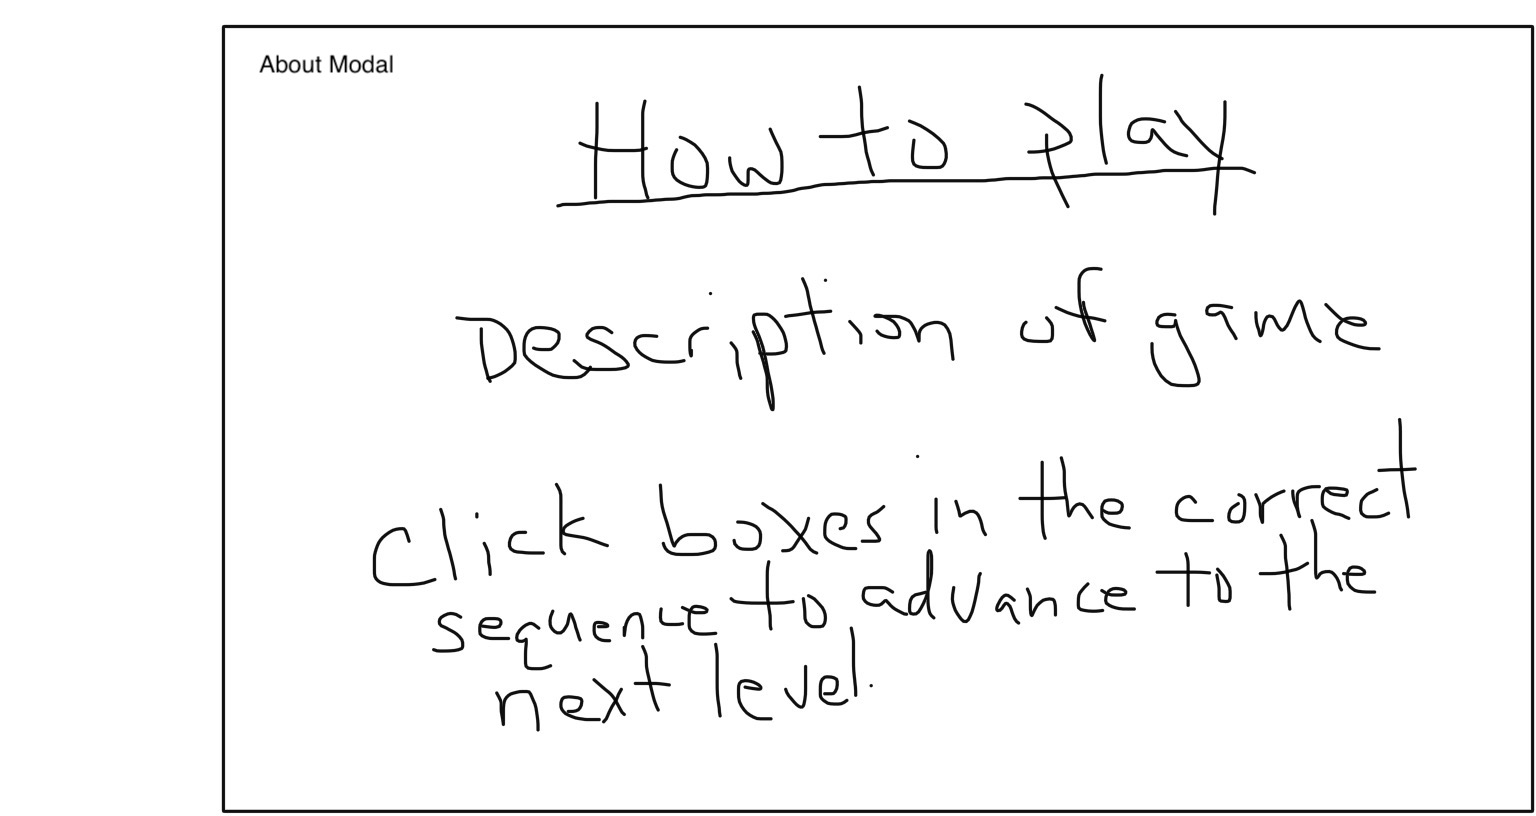 About Modal
How to play
Description of game
Click boxes in the correct
sequence to advance to the
next level.